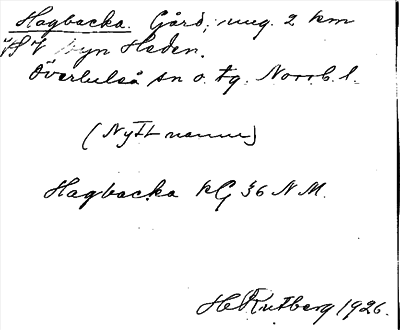 Hagbacka. Gård, ung. 2 km
V byn Heden.
Överluleå sn o. tg. Norrb. l.
(Nytt namn)
Hagbacka kG 36 N M.
H Rutberg 1926.